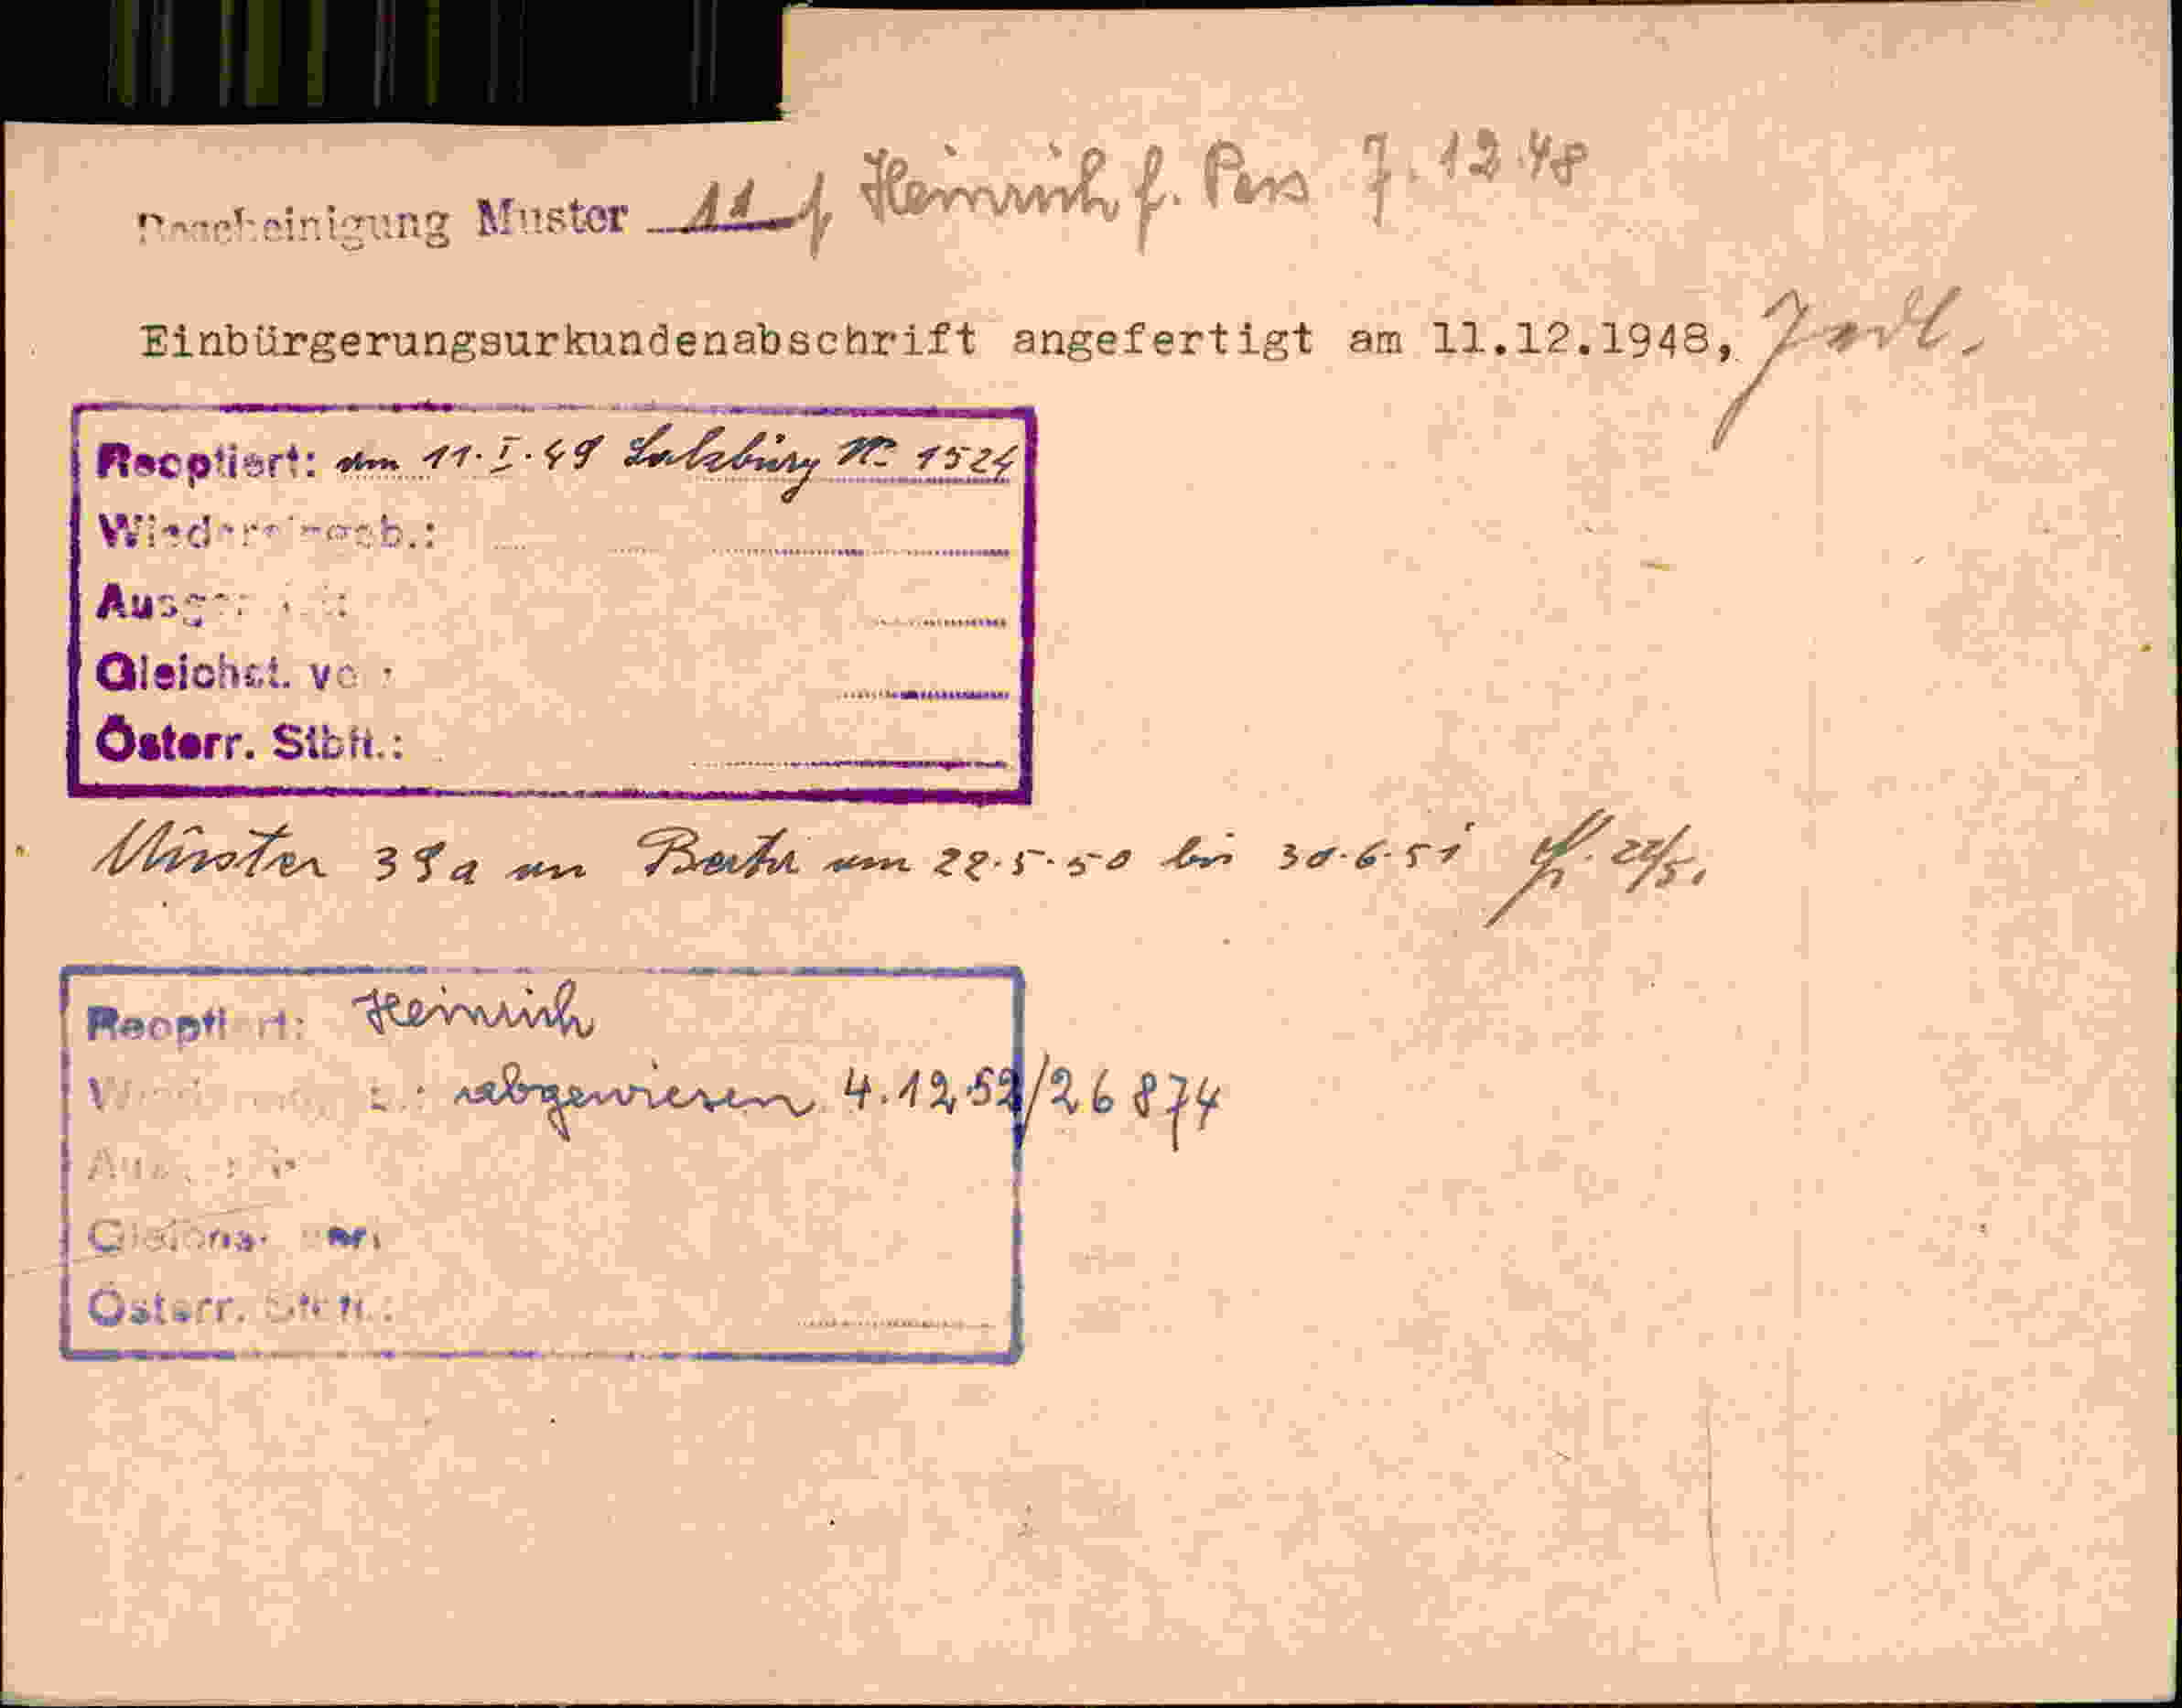 Bescheinigung Muster 11 f. Heinrich f. Pass 7.12.48
Einbürgerungsurkundenabschrift angefertigt am 11.12.1948,
Reoptiert: am 11.I.49 Salzburg N° 1524
Wiedereingeb.:
Gleichst. ver.:
Österr. Stbft.:
Muster 39a an Berta am 22.5.50 bis 30.6.51 22/5.
Reoptiert: Heinrich
abgewiesen 4.12.52/26874
Gleichst. ver.:
Österr. Stbft.: